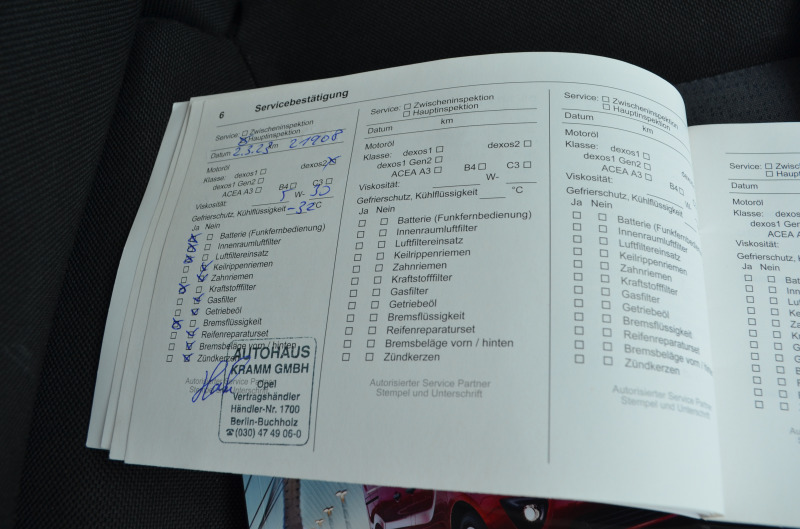 6 Servicebestätigung
Service: Zwischeninspektion
Hauptinspektion
Datum 2.3.23 km 21908
Motoröl
Klasse: dexos1 dexos2
dexos1 Gen2
ACEA A3 B4 C3
Viskosität: 5 W- 30
Gefrierschutz, Kühlflüssigkeit -32°C
Ja Nein
Batterie (Funkfernbedienung)
Innenraumluftfilter
Luftfiltereinsatz
Keilrippenriemen
Zahnriemen
Kraftstofffilter
Gasfilter
Getriebeöl
Bremsflüssigkeit
Reifenreparaturset
Bremsbeläge vorn / hinten
Zündkerzen
AUTOHAUS
KRAMM GMBH
Opel
Vertragshändler
Händler-Nr. 1700
Berlin-Buchholz
☎(030) 47 49 06-0
Autorisierter Service Partner
Stempel und Unterschrift
Service: Zwischeninspektion
Hauptinspektion
Datum km
Motoröl
Klasse: dexos1 dexos2
dexos1 Gen2
ACEA A3 B4 C3
Viskosität: W-
Gefrierschutz, Kühlflüssigkeit °C
Ja Nein
Batterie (Funkfernbedienung)
Innenraumluftfilter
Luftfiltereinsatz
Keilrippenriemen
Zahnriemen
Kraftstofffilter
Gasfilter
Getriebeöl
Bremsflüssigkeit
Reifenreparaturset
Bremsbeläge vorn / hinten
Zündkerzen
Autorisierter Service Partner
Stempel und Unterschrift
Service: Zwischeninspektion
Hauptinspektion
Datum km
Motoröl
Klasse: dexos1
dexos1 Gen2
ACEA A3 B4
Viskosität:
Gefrierschutz, Kühlflüssigkeit
Ja Nein
Batterie (Funkfern
Innenraumluftfilter
Luftfiltereinsatz
Keilrippenriemen
Zahnriemen
Kraftstofffilter
Gasfilter
Getriebeöl
Bremsflüssigkeit
Reifenreparaturset
Bremsbeläge vorn / h
Zündkerzen
Autorisierter Service Partner
Stempel und Unterschrift
Service: Zwisc
Haupt
Datum
Motoröl
Klasse: dexos1
dexos1 Gen2
ACEA A
Viskosität:
Gefrierschutz, K
Ja Nein
Bat
Inne
Lu
Ke
Za
Kr
G
G
B